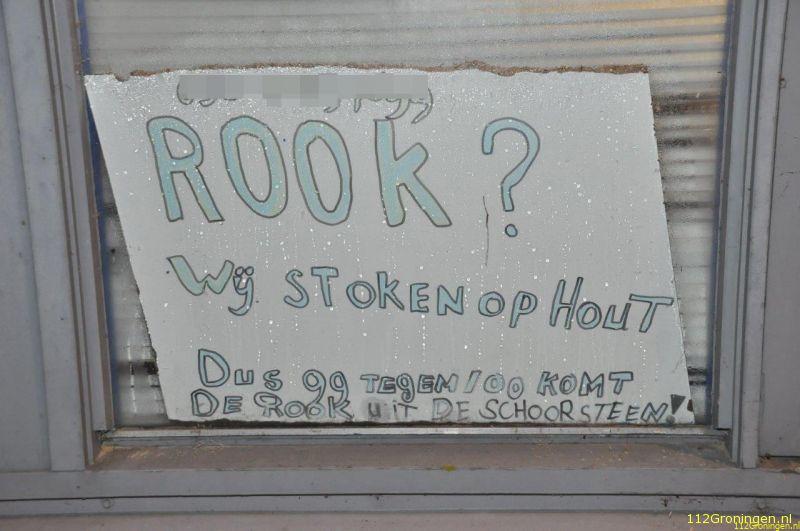 ROOK?
Wij STOKEN OP HOUT
DUS 99 TEGEN 100 KOMT
DE ROOK UIT DE SCHOORSTEEN!
112Groningen.nl
112Groningen.nl